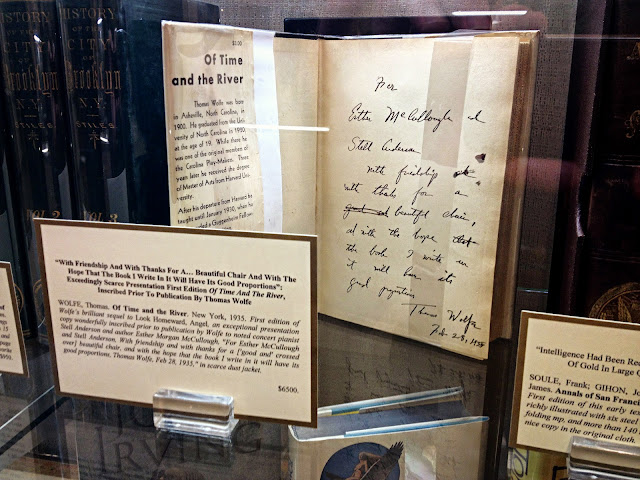 HISTORY
OF THE
CITY
OF
Brooklyn
N.Y.
STILES
VOL. 2
HISTORY
OF THE
CITY
OF
Brooklyn
N.Y.
STILES
VOL. 3
$3.00
Of Time
and the River
Thomas Wolfe was born
in Asheville, North Carolina, in
1900. He graduated from the Uni-
versity of North Carolina in 1920,
at the age of 19. While there he
was one of the original members of
the Carolina Play-Makers. Three
years later he received the degree
of Master of Arts from Harvard Uni-
versity.
After his departure from Harvard he
taught until January 1930, when he
a Guggenheim Fellow
For
Esther McCullough and
Stell Andersen
with friendship
with thanks for a
good and beautiful chair,
and with the hope that
the book I write in
it will have its
good proportions
Thomas Wolfe
Feb 28, 1935
"With Friendship And With Thanks For A... Beautiful Chair And With The
Hope That The Book I Write In It Will Have Its Good Proportions":
Exceedingly Scarce Presentation First Edition Of Time And The River,
Inscribed Prior To Publication By Thomas Wolfe
WOLFE, Thomas. Of Time and the River. New York, 1935. First edition of
Wolfe's brilliant sequel to Look Homeward, Angel, an exceptional presentation
copy wonderfully inscribed prior to publication by Wolfe to noted concert pianist
Stell Andersen and author Esther Morgan McCullough, "For Esther McCullough
and Stell Andersen, With friendship and with thanks for a ['good and' crossed
over] beautiful chair, and with the hope that the book I write in it will have its
good proportions. Thomas Wolfe, Feb 28, 1935," in scarce dust jacket.
$6500.
"Intelligence Had Been Rec
Of Gold In Large Q
SOULE, Frank; GIHON, Jo
James. Annals of San Franci
First edition of this early
richly illustrated with six steel
folding map, and more than 140
nice copy in the original cloth.
IRVING